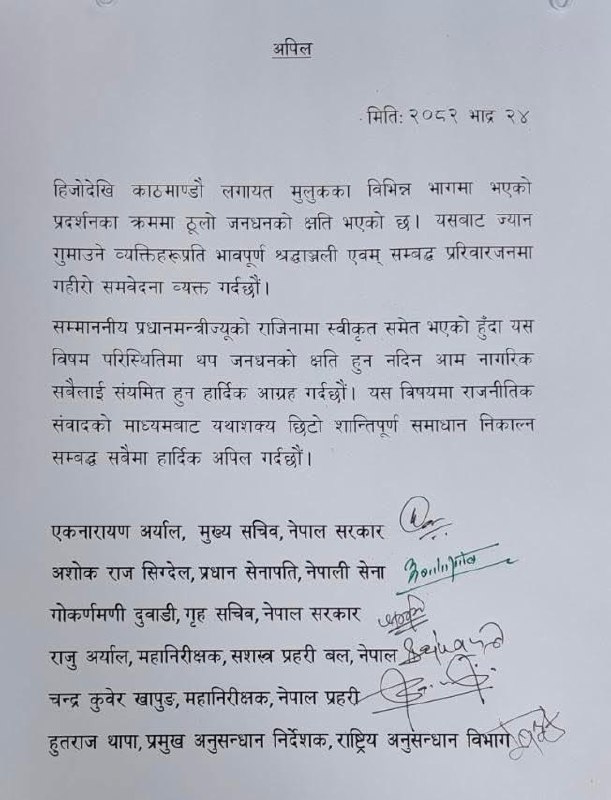 अपिल
मिति: २०८२ भाद्र २४
हिजोदेखि काठमाण्डौ लगायत मुलुकका विभिन्न भागमा भएको
प्रदर्शनका क्रममा ठूलो जनधनको क्षति भएको छ। यसबाट ज्यान
गुमाउने व्यक्तिहरूप्रति भावपूर्ण श्रद्धाञ्जली एवम् सम्बद्ध प्ररिवारजनमा
गहीरो समवेदना व्यक्त गर्दछौं।
सम्माननीय प्रधानमन्त्रीज्यूको राजिनामा स्वीकृत समेत भएको हुँदा यस
विषम परिस्थितिमा थप जनधनको क्षति हुन नदिन आम नागरिक
सबैलाई संयमित हुन हार्दिक आग्रह गर्दछौं। यस विषयमा राजनीतिक
संवादको माध्यमबाट यथाशक्य छिटो शान्तिपूर्ण समाधान निकाल्न
सम्बद्ध सबैमा हार्दिक अपिल गर्दछौं।
एकनारायण अर्याल, मुख्य सचिव, नेपाल सरकार
अशोक राज सिग्देल, प्रधान सेनापति, नेपाली सेना
गोकर्णमणी दुवाडी, गृह सचिव, नेपाल सरकार
राजु अर्याल, महानिरीक्षक, सशस्त्र प्रहरी बल, नेपाल
चन्द्र कुवेर खापुङ, महानिरीक्षक, नेपाल प्रहरी
हुतराज थापा, प्रमुख अनुसन्धान निर्देशक, राष्ट्रिय अनुसन्धान विभाग